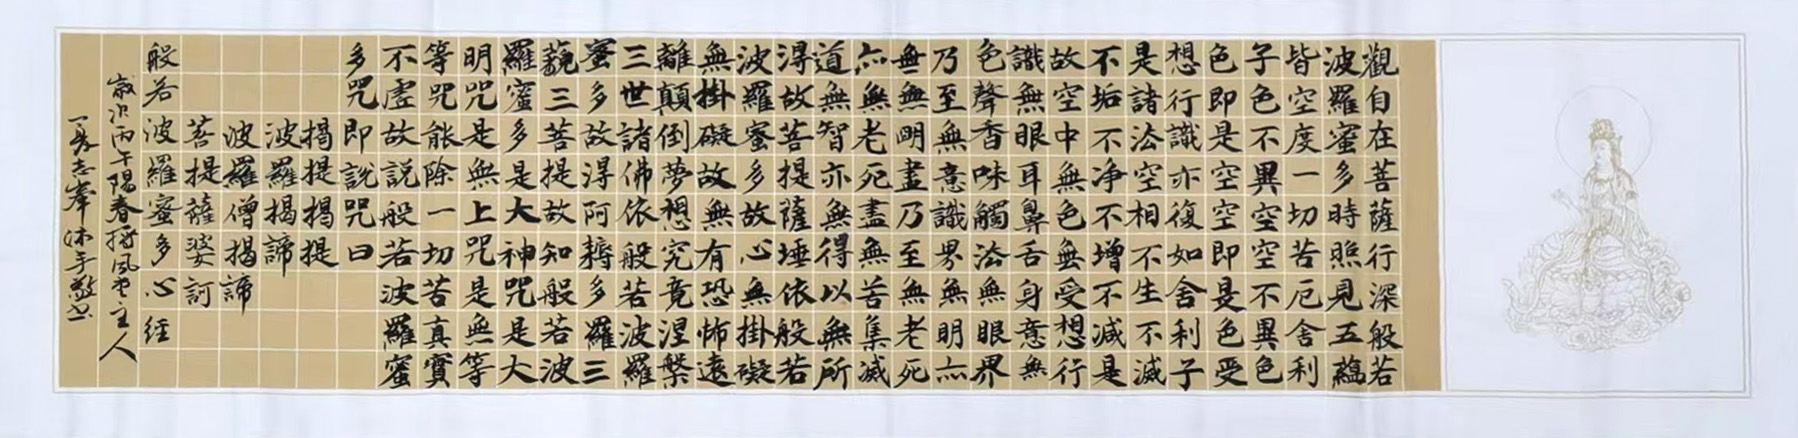 觀自在菩薩行深般若
波羅蜜多時照見五蘊
皆空度一切苦厄舍利
子色不異空空不異色
色即是空空即是色受
想行識亦復如舍利子
是諸法空相不生不滅
不垢不净不增不減是
故空中無色無受想行
識無眼耳鼻舌身意無
色聲香味觸法無眼界
乃至無意識界無明亦
無無明盡乃至無老死
亦無老死盡無苦集滅
道無智亦無得以無所
得故菩提薩埵依般若
波羅蜜多故心無掛礙
無掛礙故無有恐怖遠
離顛倒夢想究竟涅槃
三世諸佛依般若波羅
蜜多故得阿耨多羅三
藐三菩提故知般若波
羅蜜多是大神咒是大
明咒是無上咒是無等
等咒能除一切苦真實
不虛故說般若波羅蜜
多咒即說咒曰
揭提揭提
波羅揭諦
波羅僧揭諦
菩提薩婆訶
般若波羅蜜多心經
歲次丙午陽春風堂主人
志峯沐手敬書